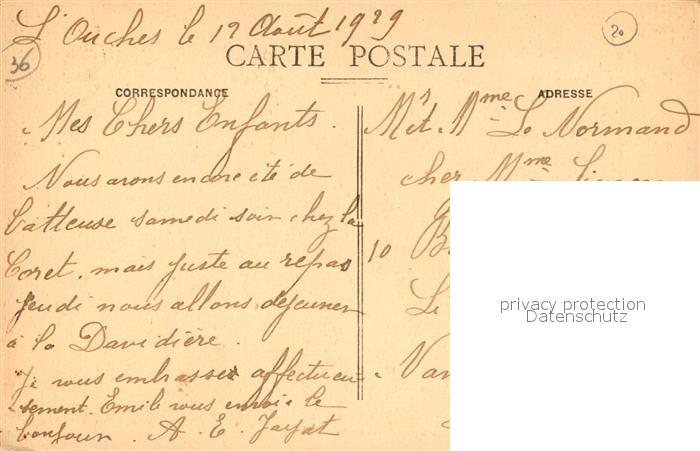 L'Ouches le 12 Août 1929
36
20
CARTE POSTALE
CORRESPONDANCE
ADRESSE
Mes Chers Enfants.
Nous avons encore été de
batteuse samedi soir chez la
Coret, mais juste au repas
Jeudi nous allons dejeuner
à la Davidière.
Je vous embrasse affectueu
sement. Emile vous envoie le
bonjour. A. E.
Mr et Mme Le Normand
cher Mme
10
Le
privacy protection
Datenschutz